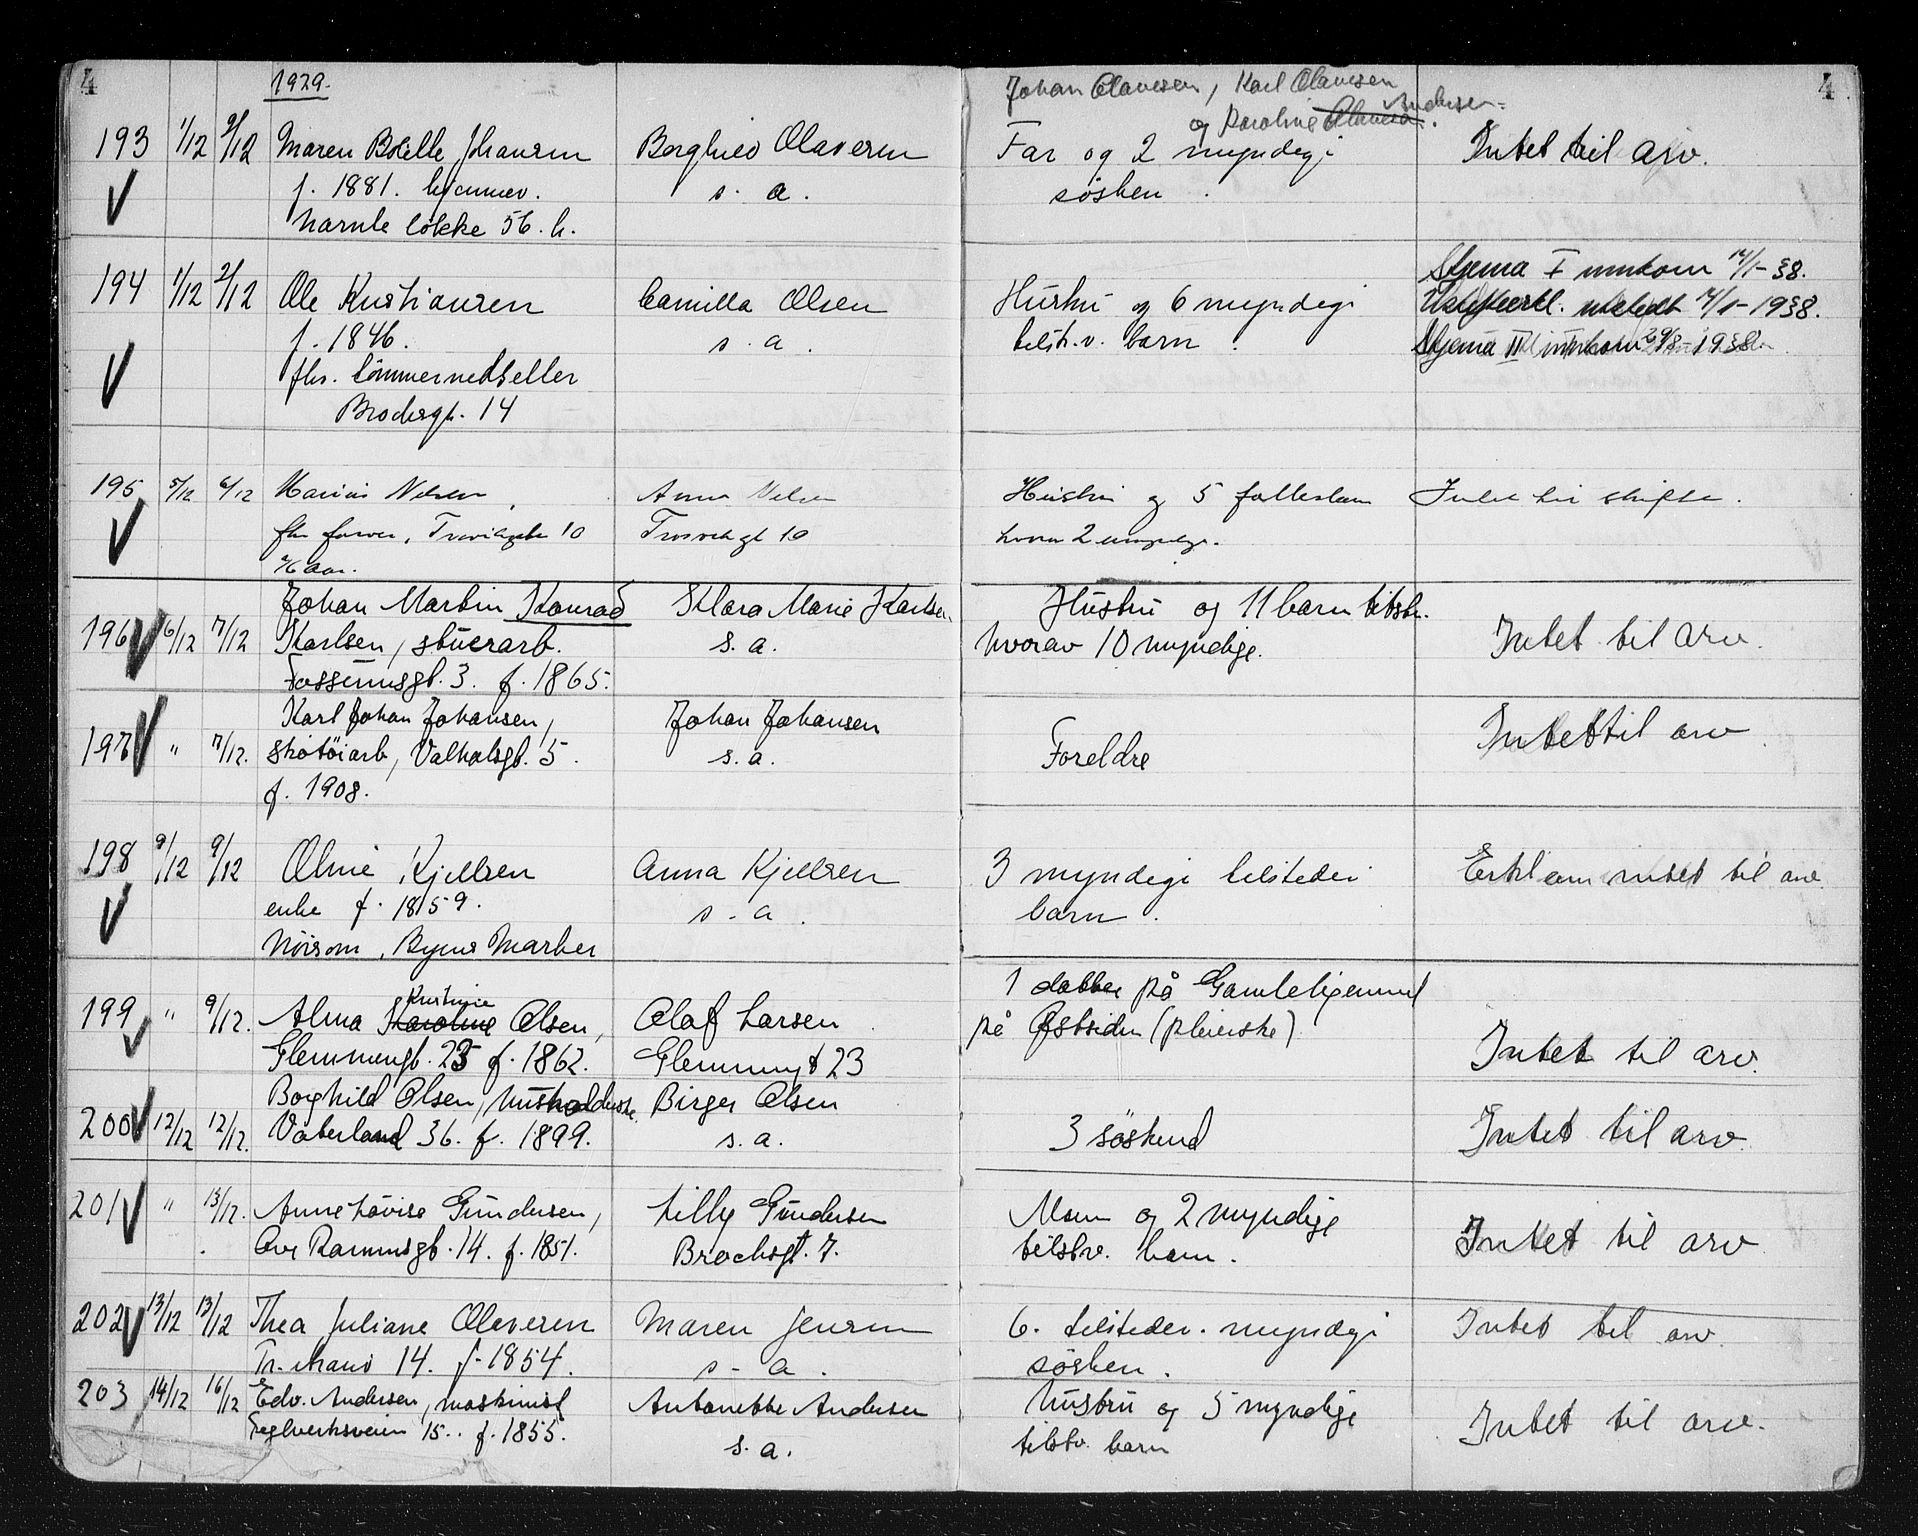 4
1929.
Johan Olavesen, Karl Olavesen
og Karoline Olavesen Andersen.
4
193 1/12 2/12 Maren Bolette Johansen Borghild Olavesen Far og 2 myndige Intet til arv.
f. 1881. hjemmev. s. a. søsken.
løkke 56. h.
194 1/12 2/12 Ole Kristiansen Camilla Olsen Hustru og 6 myndige Skjema I innkom 14/1-38.
f. 1846. s. a. tilst.v. barn. utstedt 14/1-1938.
Skjema III innkom 1938
fhv. tømmernedseller
Brochsgt. 14
195 5/12 6/12 Marius Nelsen, Anna Nelsen Hustru og 5 fellesbarn Intet til skifte.
fhv farver, Trosvikgt 10 Trosvikgt 10 hvorav 2 umyndige.
Aar.
Johan Martin Konrad Klara Marie Karlsen Hustru og 11 barn tilst.
196 6/12 7/12 Karlsen, stuerarb. s. a. hvorav 10 myndige. Intet til arv.
Fossumsgt. 3. f. 1865.
Karl Johan Johansen, Johan Johansen Intet til arv.
197 " 7/12. skotøiarb, Valhalsgt. 5. s. a. Foreldre
f. 1908.
198 9/12 9/12 Oline Kjellsen Anna Kjellsen 3 myndige tilstedev. Erkl om intet til arv
enke f. 1859. s. a. barn.
Nøisom, Byens Marker
1 datter på Gamlehjemmet
199 " 9/12. Alma Karoline Kristine Olsen, Olaf Larsen på Østsiden (pleierske)
Glemmengt. 23 f. 1862. Glemmengt 23 Intet til arv.
Borghild Olsen, husholderske Birger Olsen
200 12/12 12/12. Vaterland 36. f. 1899. s. a. 3 søskend Intet til arv.
201 " 13/12. Anne Lovise Gundersen, Lilly Gundersen Mann og 2 myndige
Ove Ramms gt. 14. f. 1851. Brochsgt. 7. tilstv. barn. Intet til arv
202 13/12 13/12 Thea Juliane Olavesen Maren Jensen 6. tilstedev. myndige Intet til arv.
14. f. 1854. s. a. søsken.
203 14/12 16/12 Edv. Andersen, maskinist Antonette Andersen Hustru og 5 myndige
Teglverksveien 15.. f. 1855. s. a. tilstv. barn Intet til arv.